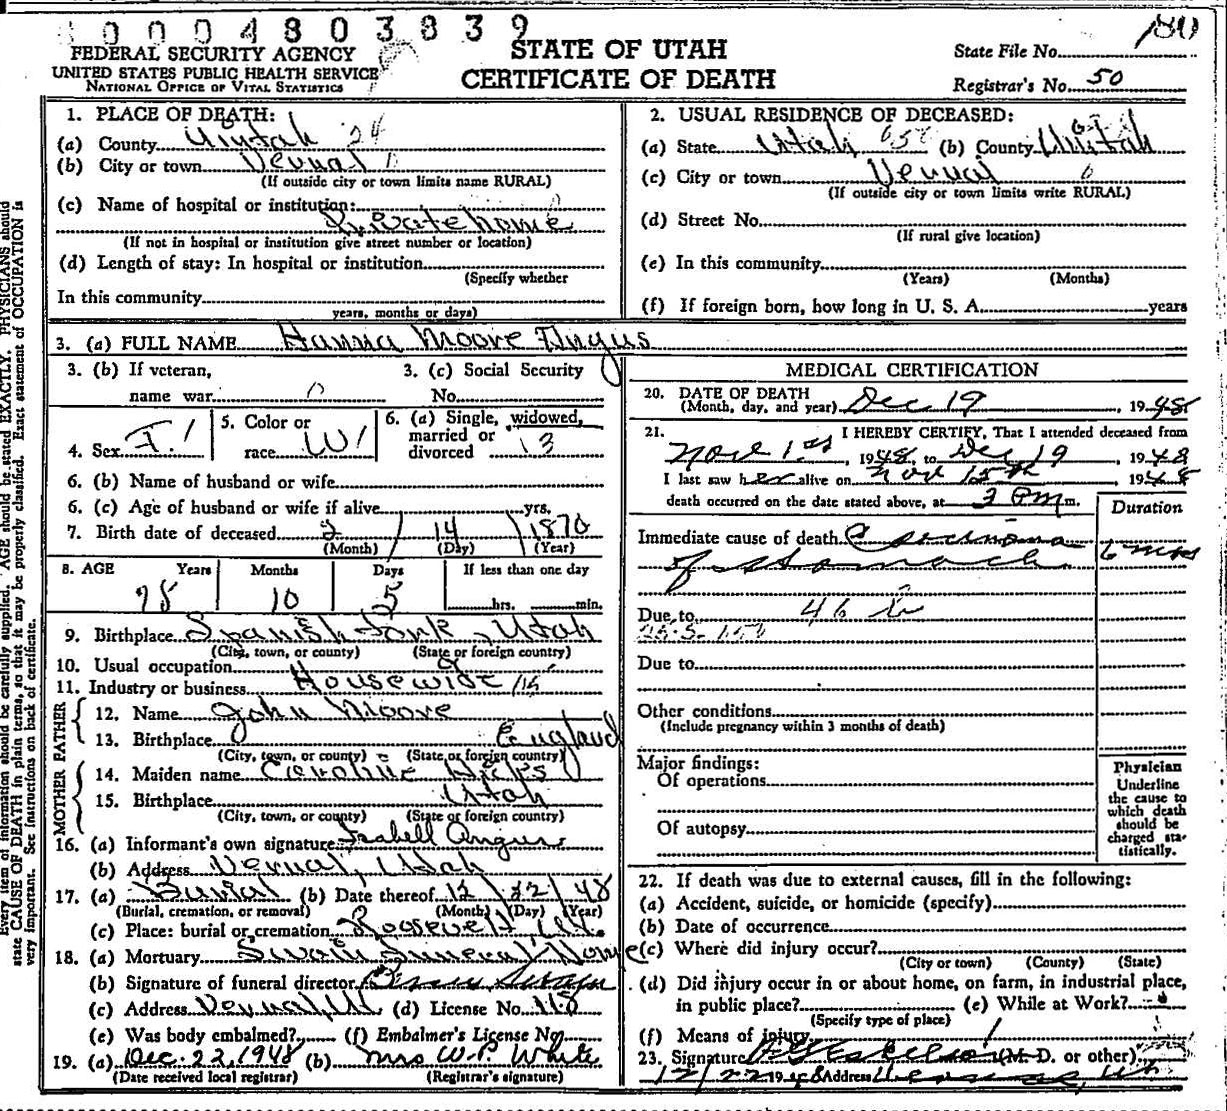 0004803839
FEDERAL SECURITY AGENCY
UNITED STATES PUBLIC HEALTH SERVICE
NATIONAL OFFICE OF VITAL STATISTICS
STATE OF UTAH
CERTIFICATE OF DEATH
State File No. 180
Registrar's No. 50
1. PLACE OF DEATH:
(a) County Uintah 24
(b) City or town Vernal
(If outside city or town limits name RURAL)
(c) Name of hospital or institution:
Private home
(If not in hospital or institution give street number or location)
(d) Length of stay: In hospital or institution
(Specify whether
In this community
years, months or days)
2. USUAL RESIDENCE OF DECEASED:
(a) State Utah (b) County Uintah
(c) City or town Vernal
(If outside city or town limits write RURAL)
(d) Street No.
(If rural give location)
(e) In this community
(Years) (Months)
(f) If foreign born, how long in U. S. A. years
3. (a) FULL NAME Hanna Moore Angus
3. (b) If veteran, name war 0
3. (c) Social Security No.
4. Sex F 1
5. Color or race W 1
6. (a) Single, widowed, married or divorced 3
6. (b) Name of husband or wife
6. (c) Age of husband or wife if alive yrs.
7. Birth date of deceased 2 / 14 / 1870
(Month) (Day) (Year)
8. AGE Years Months Days If less than one day
78 10 5 hrs. min.
9. Birthplace Spanish Fork, Utah
(City, town, or county) (State or foreign country)
10. Usual occupation
11. Industry or business Housewife
FATHER
12. Name John Moore
13. Birthplace England
(City, town, or county) (State or foreign country)
MOTHER
14. Maiden name Caroline Hicks
15. Birthplace Utah
(City, town, or county) (State or foreign country)
16. (a) Informant's own signature Isabell Angus
(b) Address Vernal, Utah
17. (a) Burial (b) Date thereof 12/22/48
(Burial, cremation, or removal) (Month) (Day) (Year)
(c) Place: burial or cremation Roosevelt Ut.
18. (a) Mortuary Swain Funeral Home
(b) Signature of funeral director Swain
(c) Address Vernal, Ut (d) License No. 118
(e) Was body embalmed? (f) Embalmer's License No.
19. (a) Dec. 22, 1948 (b) Mrs W. P. White
(Date received local registrar) (Registrar's signature)
MEDICAL CERTIFICATION
20. DATE OF DEATH
(Month, day, and year) Dec 19, 1948
21. I HEREBY CERTIFY, That I attended deceased from
Nov 1st, 1948, to Dec 19 1948
I last saw her alive on Nov 15th 1948
death occurred on the date stated above, at 3 P m m.
Duration
Immediate cause of death Carcinoma
of stomach 6 mos
Due to 46
Due to
Other conditions
(Include pregnancy within 3 months of death)
Major findings:
Of operations
Of autopsy
Physician
Underline
the cause to
which death
should be
charged sta-
tistically.
22. If death was due to external causes, fill in the following:
(a) Accident, suicide, or homicide (specify)
(b) Date of occurrence
(c) Where did injury occur?
(City or town) (County) (State)
(d) Did injury occur in or about home, on farm, in industrial place,
in public place? (e) While at Work?
(Specify type of place)
(f) Means of injury
23. Signature (M. D. or other)
12/22 1948 Address Vernal, Ut
Every item of information should be carefully supplied. AGE should be stated EXACTLY. PHYSICIANS should
state CAUSE OF DEATH in plain terms, so that it may be properly classified. Exact statement of OCCUPATION is
very important. See instructions on back of certificate.